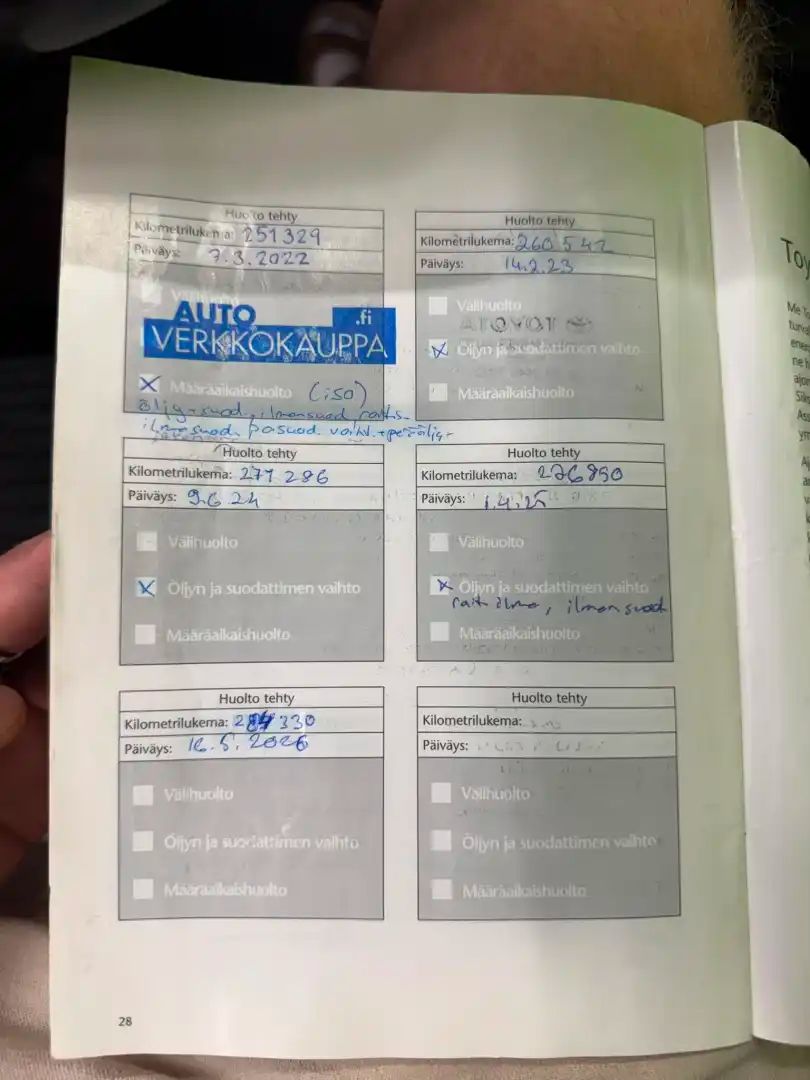 Huolto tehty
Kilometrilukema: 251329
Päiväys: 7.3.2022
AUTO
VERKKOKAUPPA .fi
Määräaikaishuolto (iso)
öljy+suod, ilmansuod, raitis-
ilmasuod, pasuod. vaiht. +peräöljy
Huolto tehty
Kilometrilukema: 260 542
Päiväys: 14.2.23
Välihuolto
Öljyn ja suodattimen vaihto
Määräaikaishuolto
Huolto tehty
Kilometrilukema: 271 286
Päiväys: 9.6.24
Välihuolto
Öljyn ja suodattimen vaihto
Määräaikaishuolto
Huolto tehty
Kilometrilukema: 276890
Päiväys: 1.4.25
Välihuolto
Öljyn ja suodattimen vaihto
rait ilma, ilmansuod
Määräaikaishuolto
Huolto tehty
Kilometrilukema: 284 330
Päiväys: 16.5.2026
Välihuolto
Öljyn ja suodattimen vaihto
Määräaikaishuolto
Huolto tehty
Kilometrilukema:
Päiväys:
Välihuolto
Öljyn ja suodattimen vaihto
Määräaikaishuolto
28
Toy
Me To